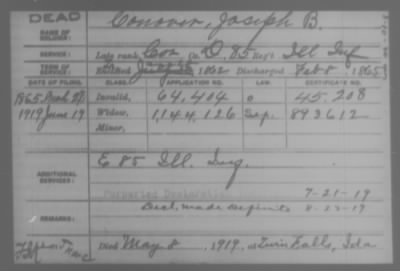 DEAD
Conover, Joseph B.
NAME OF SOLDIER:
SERVICE: Late rank, Cor Co. D, 85 Reg't Ill Inf
TERM OF SERVICE: Enlisted 1862 Discharged Feb 8, 1865
DATE OF FILING. CLASS. APPLICATION NO. LAW. CERTIFICATE NO.
1865 Invalid, 64,404 45.208
1919 June 19 Widow, 1,144,126 Sep. 893612
Minor,
ADDITIONAL SERVICES: E 85 Ill. Inf.
Purported Declaration 7-21-19
REMARKS: Decl. made 8-23-19
Died May 8, 1919, at Twin Falls, Ida